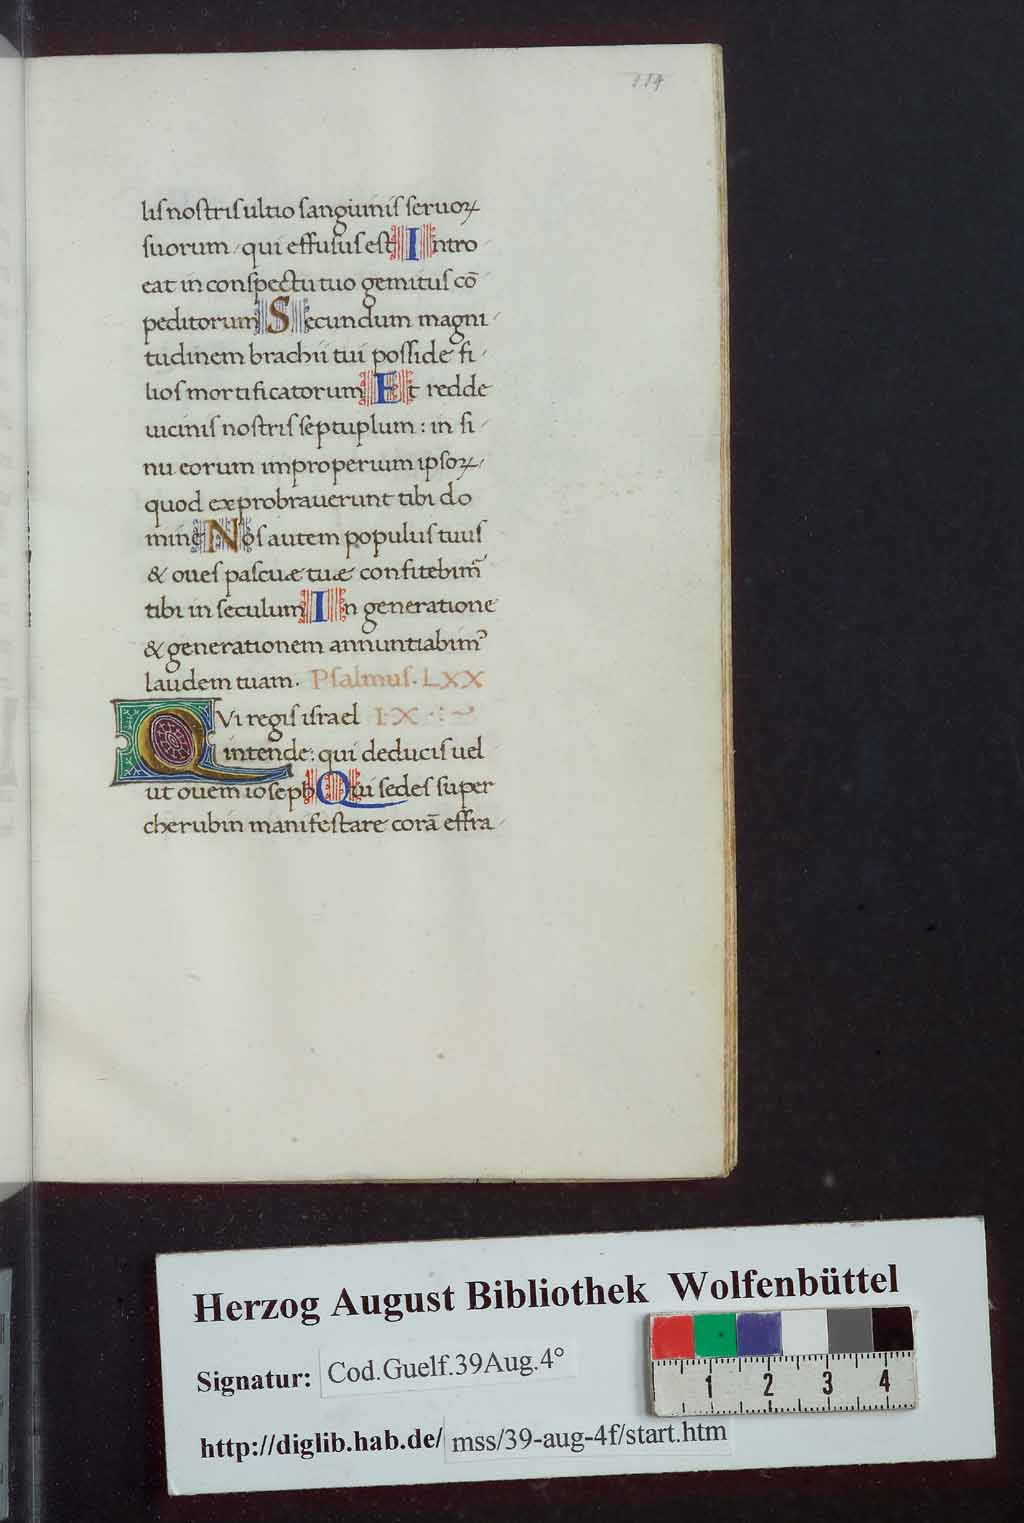 114
lis nostris ultio sanguinis seruoꝝ
suorum / qui effusus est Intro
eat in conspectu tuo gemitus cō
peditorum Secundum magni
tudinem brachii tui posside fi
lios mortificatorum Et redde
uicinis nostris septuplum : in si
nu eorum improperium ipsoꝝ
quod exprobrauerunt tibi do
mine Nos autem populus tuus
& oues pascuæ tuæ confitebim᷒
tibi in seculum In generatione
& generationem annuntiabim᷒
laudem tuam. Psalmus. LXX
QVi regis israel IX
intende: qui deducis uel
ut ouem ioseph Qui sedes super
cherubin manifestare corā effra
Herzog August Bibliothek Wolfenbüttel
Signatur: Cod.Guelf.39Aug.4°
http://diglib.hab.de/ mss/39-aug-4f/start.htm
1 2 3 4